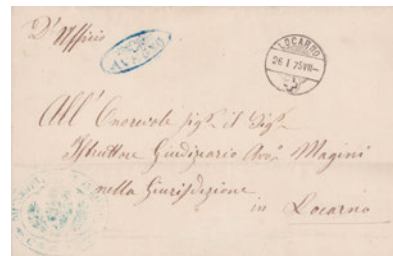 D'Ufficio
AVEGNO
LOCARNO
26 I 75 VII–
All' Onorevole Sig.r il Sig.r
Istruttore Giudiziario Avv.o Magini
nella Giurisdizione
in Locarno